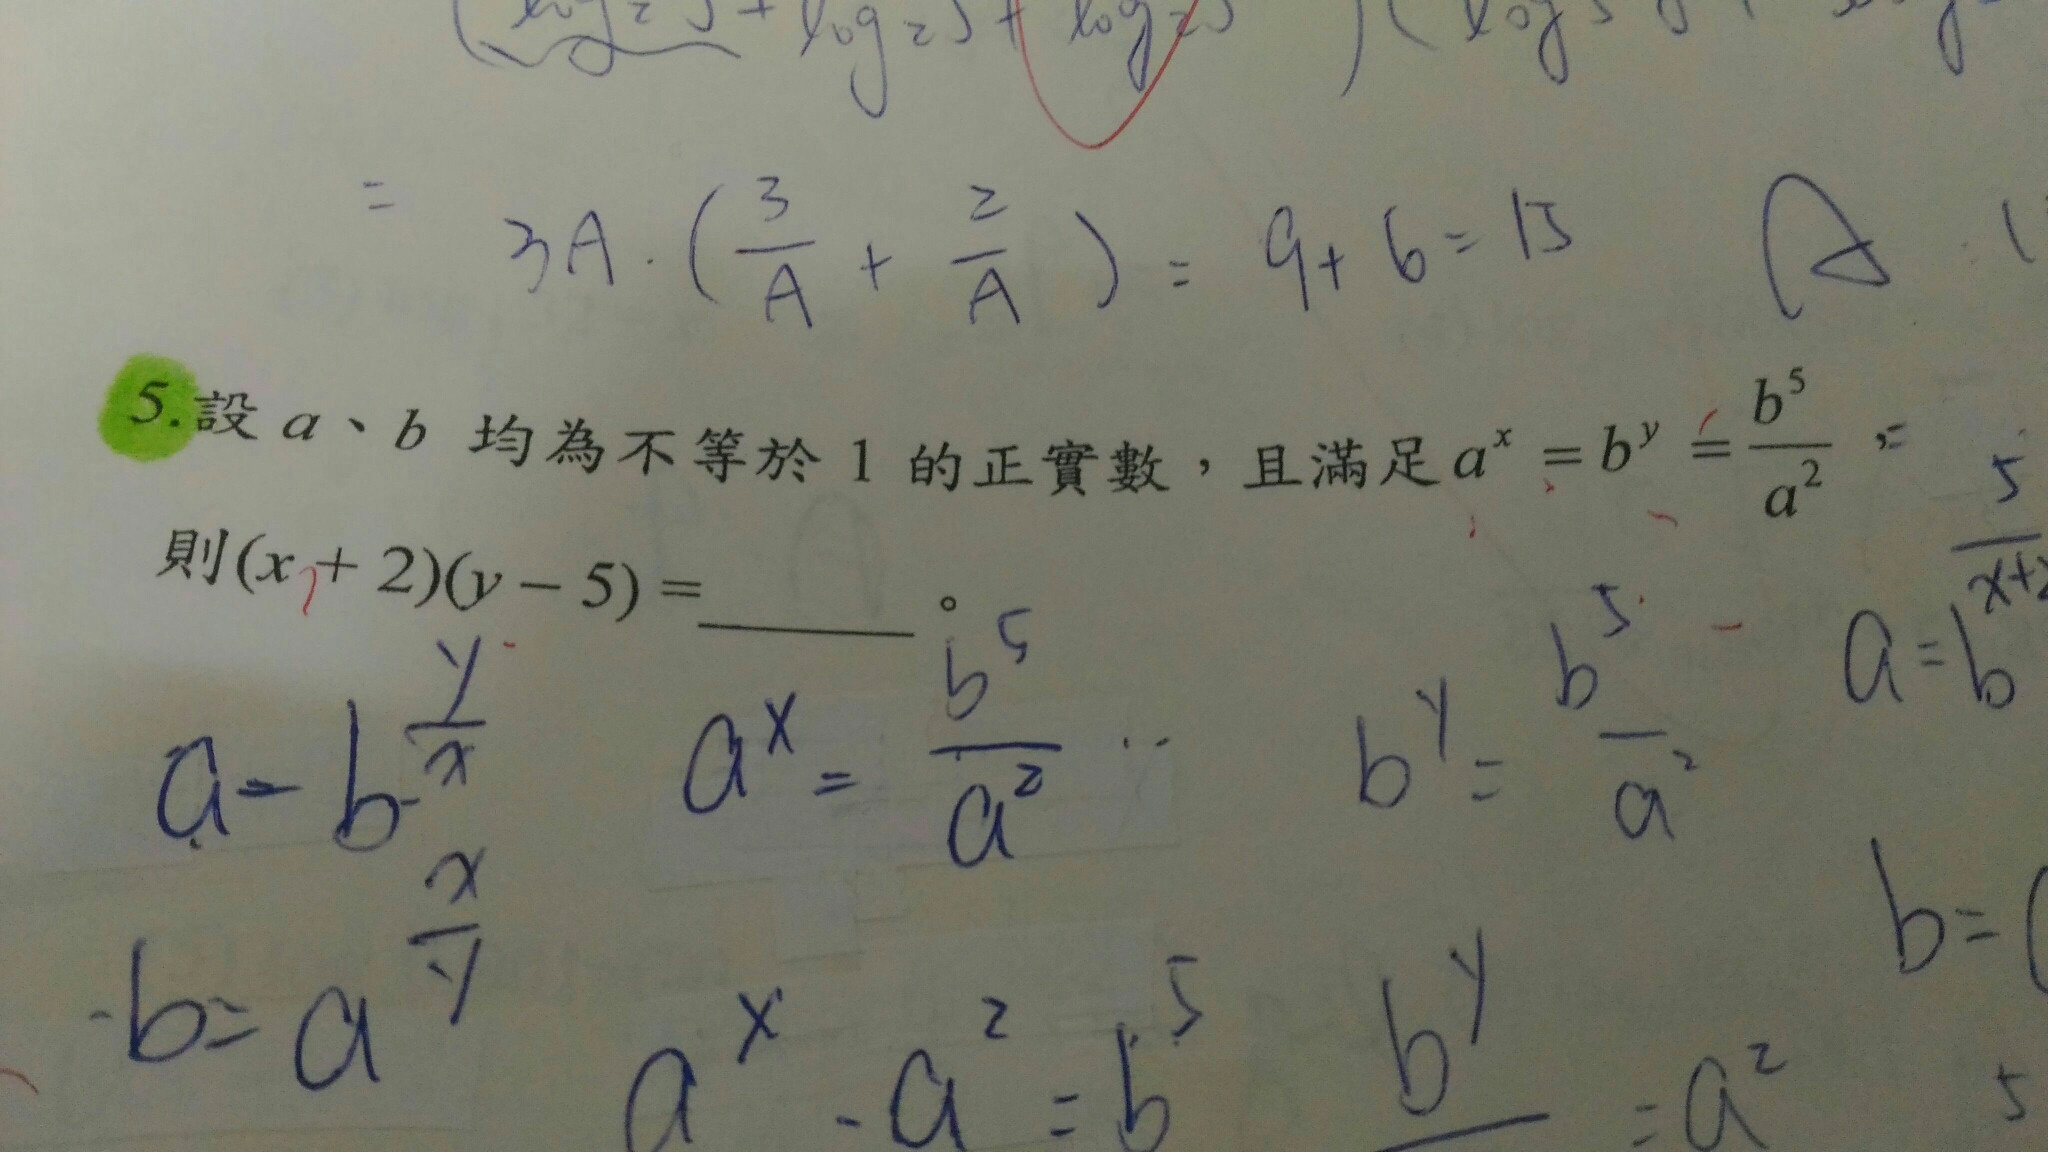 = 3A · (3/A + 2/A) = 9 + 6 = 15 A
5. 設 a、b 均為不等於 1 的正實數,且滿足 a^x = b^y = b^5/a^2,
則(x + 2)(y − 5) = ______。
a = b^(y/x)
a^x = b^5/a^2
b^y = b^5/a^2
a = b^(5/(x+2
b = a^(x/y)
a^x · a^2 = b^5
b^y = a^2
b = (
5